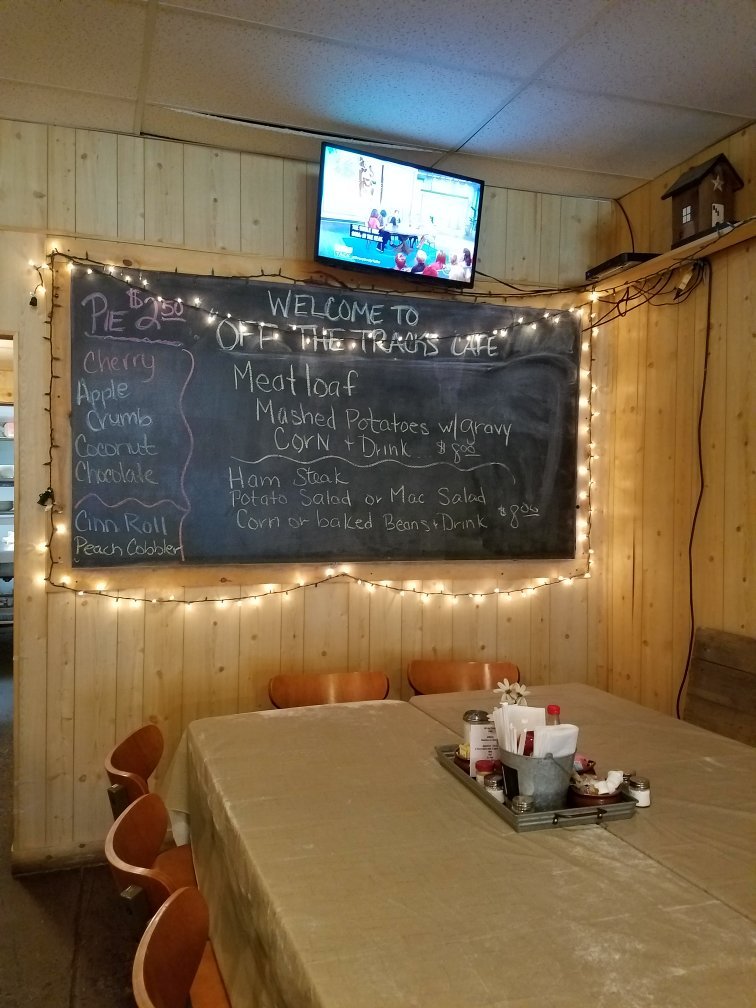 PIE $2.50
Cherry
Apple
Crumb
Coconut
Chocolate
Cinn Roll
Peach Cobbler
WELCOME TO
OFF THE TRACKS CAFE
Meatloaf
Mashed Potatoes w/gravy
CORN + Drink $8.00
Ham Steak
Potato Salad or Mac Salad
Corn or baked Beans + Drink $8.00